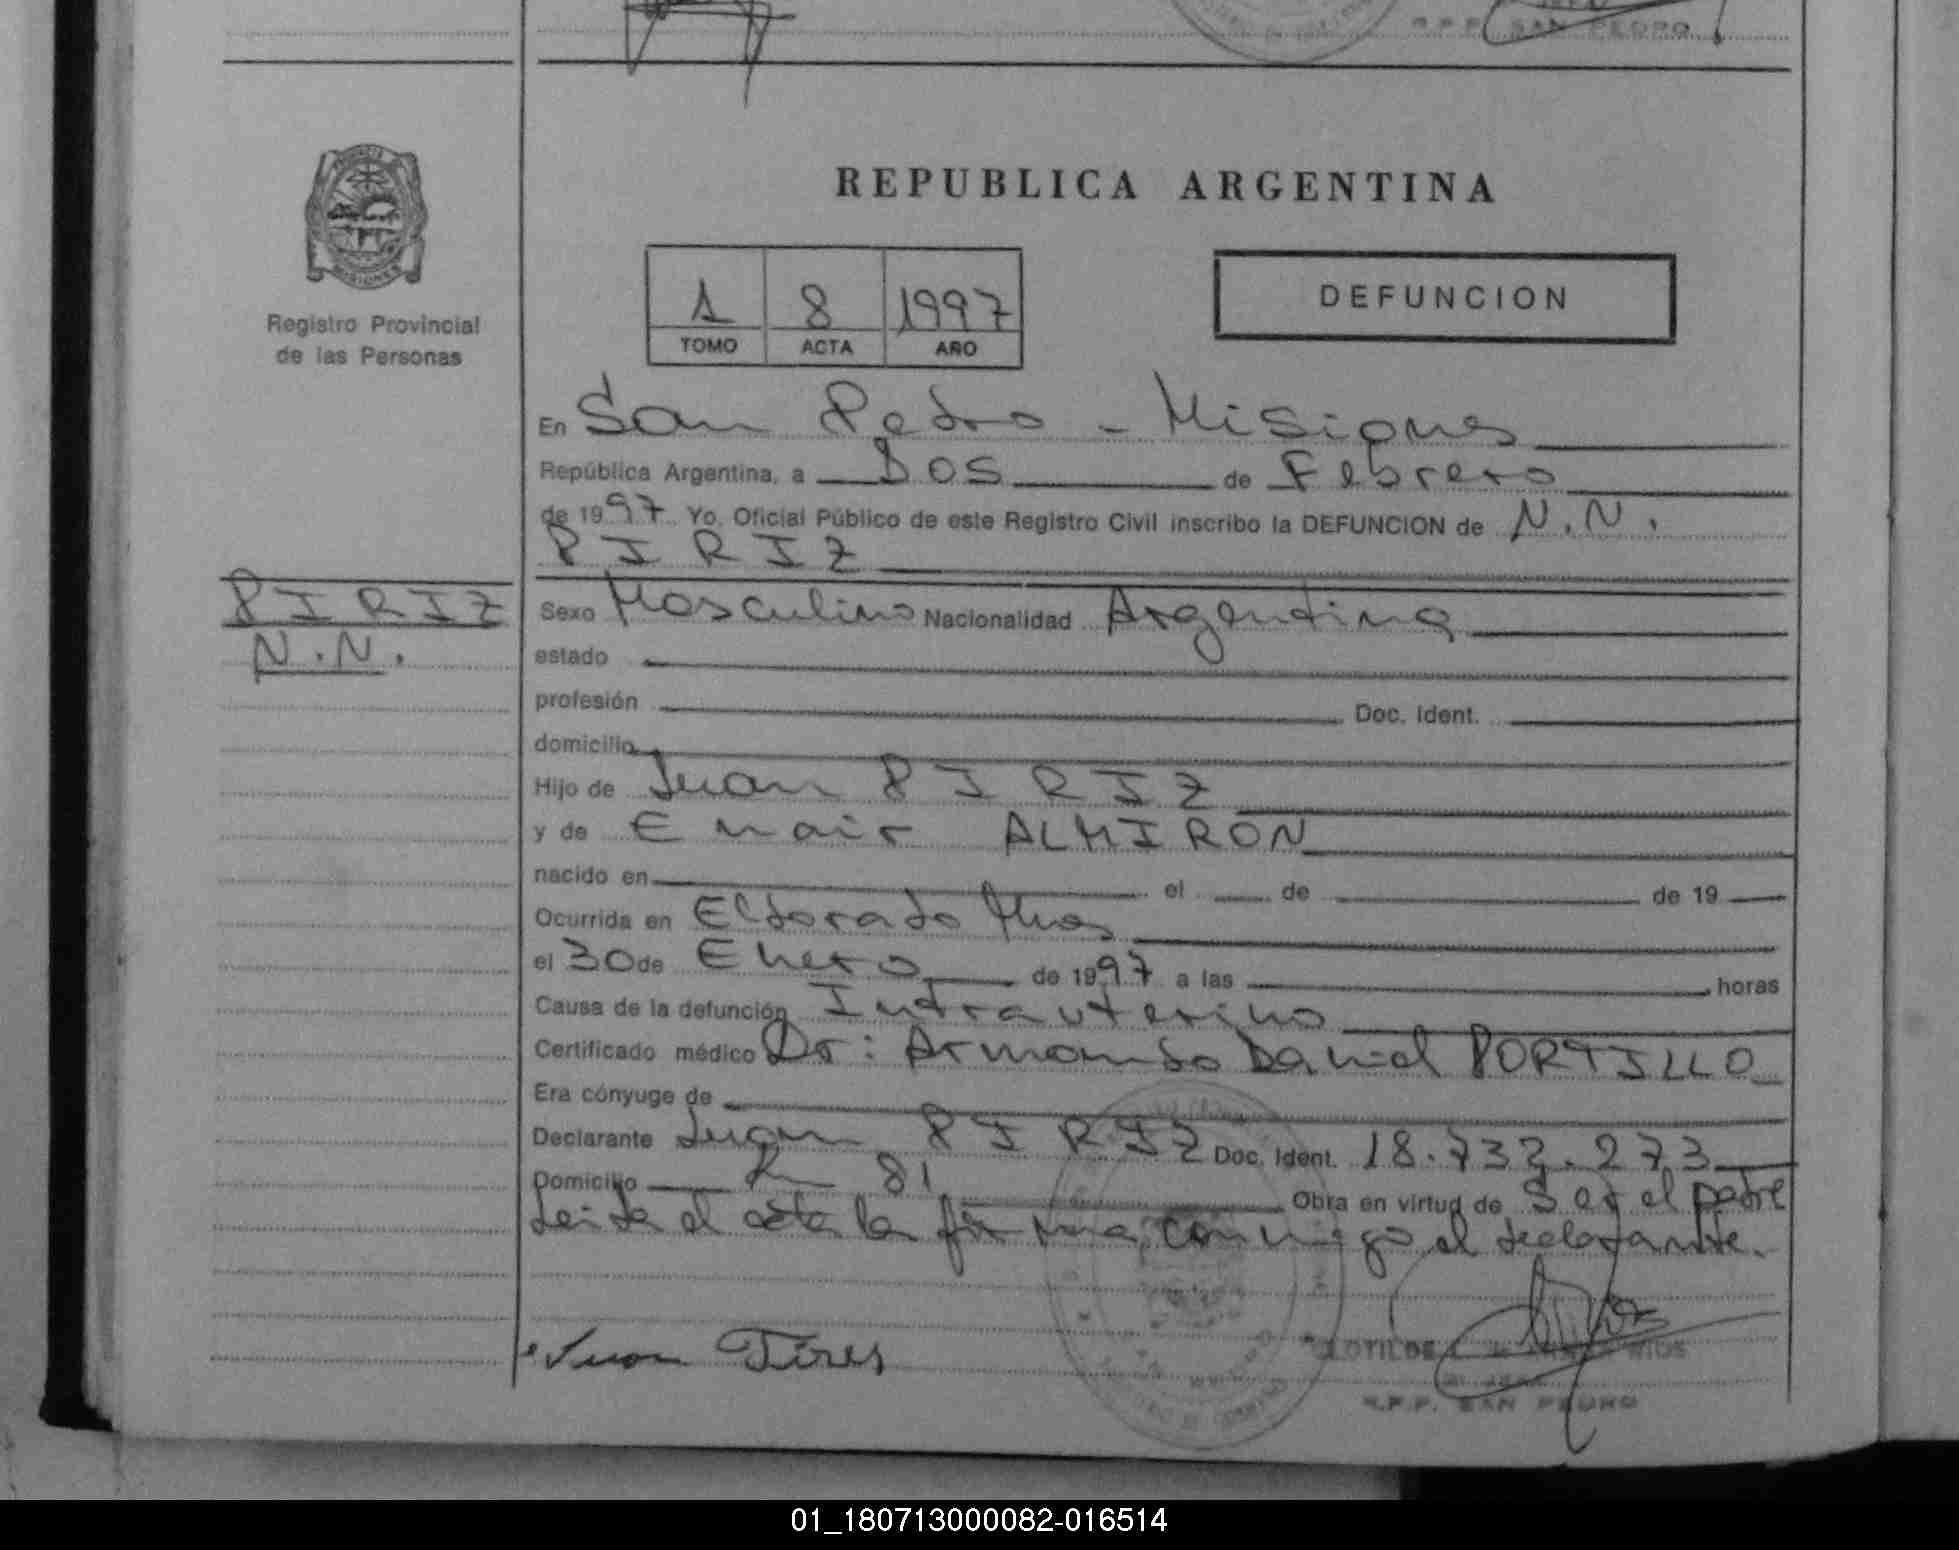 R.P.P. SAN PEDRO
REPUBLICA ARGENTINA
PROVINCIA DE
MISIONES
Registro Provincial
de las Personas
1 8 1997
TOMO ACTA AÑO
DEFUNCION
En San Pedro - Misiones
República Argentina, a Dos de Febrero
de 1997 Yo, Oficial Público de este Registro Civil inscribo la DEFUNCION de N.N.
PIRIZ
PIRIZ
N.N.
Sexo Masculino Nacionalidad Argentina
estado
profesión Doc. Ident.
domicilio
Hijo de Juan PIRIZ
y de Enair ALMIRON
nacido en el de de 19
Ocurrida en Eldorado Mnes
el 30 de Enero de 1997 a las horas
Causa de la defunción Intrauterino
Certificado médico Dr: Armando Daniel PORTILLO
Era cónyuge de
Declarante Juan PIRIZ Doc. Ident. 18.732.273
Domicilio 81 Obra en virtud de Ser el padre
Leida el acta la firma, conmigo el declarante.
Juan Pires
CLOTILDE
R.P.P. SAN PEDRO
01_180713000082-016514